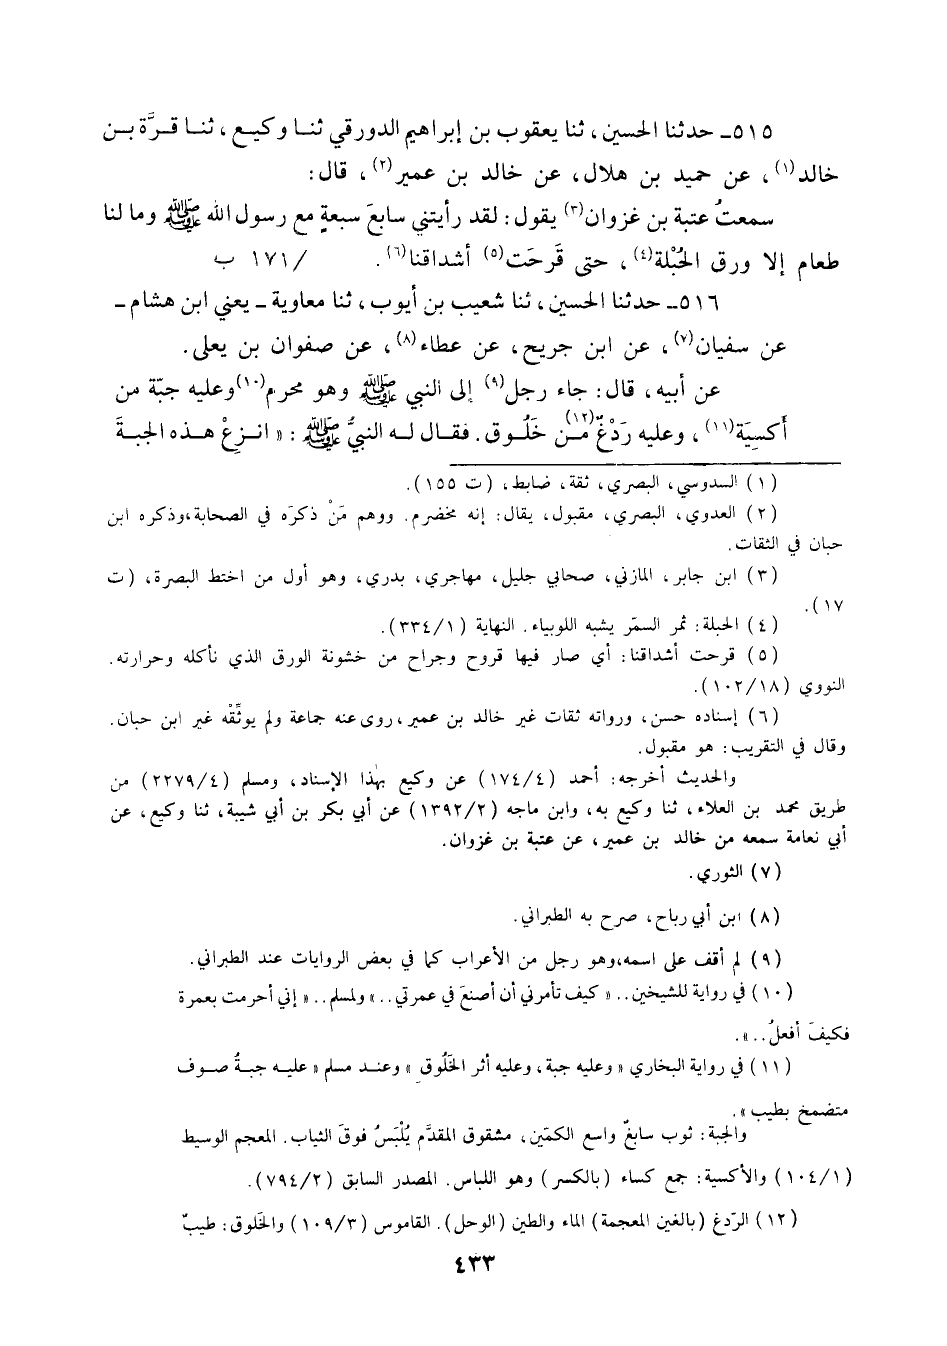 ٥١٥ــ حدثنا الحسين، ثنا يعقوب بن إبراهيم الدورقي ثنا وكيع، ثنا قرَّة بن
خالد(١)، عن حميد بن هلال، عن خالد بن عمير(٢)، قال:
سمعتُ عتبة بن غزوان(٣) يقول: لقد رأيتني سابعَ سبعةٍ مع رسول الله ﷺ وما لنا
طعام إلا ورق الحُبْلة(٤)، حتى قَرحَت(٥) أشداقنا(٦). /١٧١ ب
٥١٦ــ حدثنا الحسين، ثنا شعيب بن أيوب، ثنا معاوية ــ يعني ابن هشام ــ
عن سفيان(٧)، عن ابن جريح، عن عطاء(٨)، عن صفوان بن يعلى.
عن أبيه، قال: جاء رجل(٩) إلى النبي ﷺ وهو محرم(١٠) وعليه جبّة من
أَكسِيَة(١١)، وعليه رَدْغٌ(١٢) من خَلُوق. فقال له النبيُّ ﷺ: « انزِعْ هذه الجبةَ
(١) السدوسي، البصري، ثقة، ضابط، (ت ١٥٥).
(٢) العدوي، البصري، مقبول، يقال: إنه مخضرم. ووهم مَنْ ذكرَه في الصحابة، وذكره ابن
حبان في الثقات.
(٣) ابن جابر، المازني، صحابي جليل، مهاجري، بدري، وهو أول من اختط البصرة، (ت
١٧).
(٤) الحبلة: ثمر السمّر يشبه اللوبياء. النهاية (٣٣٤/١).
(٥) قرحت أشداقنا: أي صار فيها قروح وجراح من خشونة الورق الذي نأكله وحرارته.
النووي (١٠٢/١٨).
(٦) إسناده حسن، ورواته ثقات غير خالد بن عمير، روى عنه جماعة ولم يوثِّقْه غير ابن حبان.
وقال في التقريب: هو مقبول.
والحديث أخرجه: أحمد (١٧٤/٤) عن وكيع بهٰذا الإسناد، ومسلم (٢٢٧٩/٤) من
طريق محمد بن العلاء، ثنا وكيع به، وابن ماجه (١٣٩٢/٢) عن أبي بكر بن أبي شيبة، ثنا وكيع، عن
أبي نعامة سمعه من خالد بن عمير، عن عتبة بن غزوان.
(٧) الثوري.
(٨) ابن أبي رباح، صرح به الطبراني.
(٩) لم أقف على اسمه، وهو رجل من الأعراب كما في بعض الروايات عند الطبراني.
(١٠) في رواية للشيخين.. « كيف تأمرني أن أصنعَ في عمرتي..» ولمسلم.. « إني أحرمت بعمرة
فكيفَ أفعلُ..».
(١١) في رواية البخاري « وعليه جبة، وعليه أثر الخَلُوق » وعند مسلم « عليه جبةُ صوف
متضمخ بطيب ».
والجبة: ثوب سابغٌ واسع الكمّين، مشقوق المقدَّم يُلْبَسُ فوقَ الثياب. المعجم الوسيط
(١٠٤/١) والأكسية: جمع كساء (بالكسر) وهو اللباس. المصدر السابق (٧٩٤/٢).
(١٢) الرّدغ (بالغين المعجمة) الماء والطين (الوحل). القاموس (١٠٩/٣) والخَلوق: طيبٌ
٤٣٣